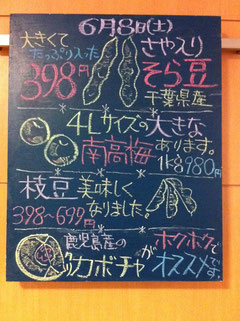 6月8日(土)
大きくて
たっぷり入った
398円
さや入り
そら豆
千葉県産
4Lサイズの大きな
南高梅
あります。
1kg980円
枝豆 美味しく
なりました。
398~699円
鹿児島産の
カボチャが
ホクホクで
オススメです。